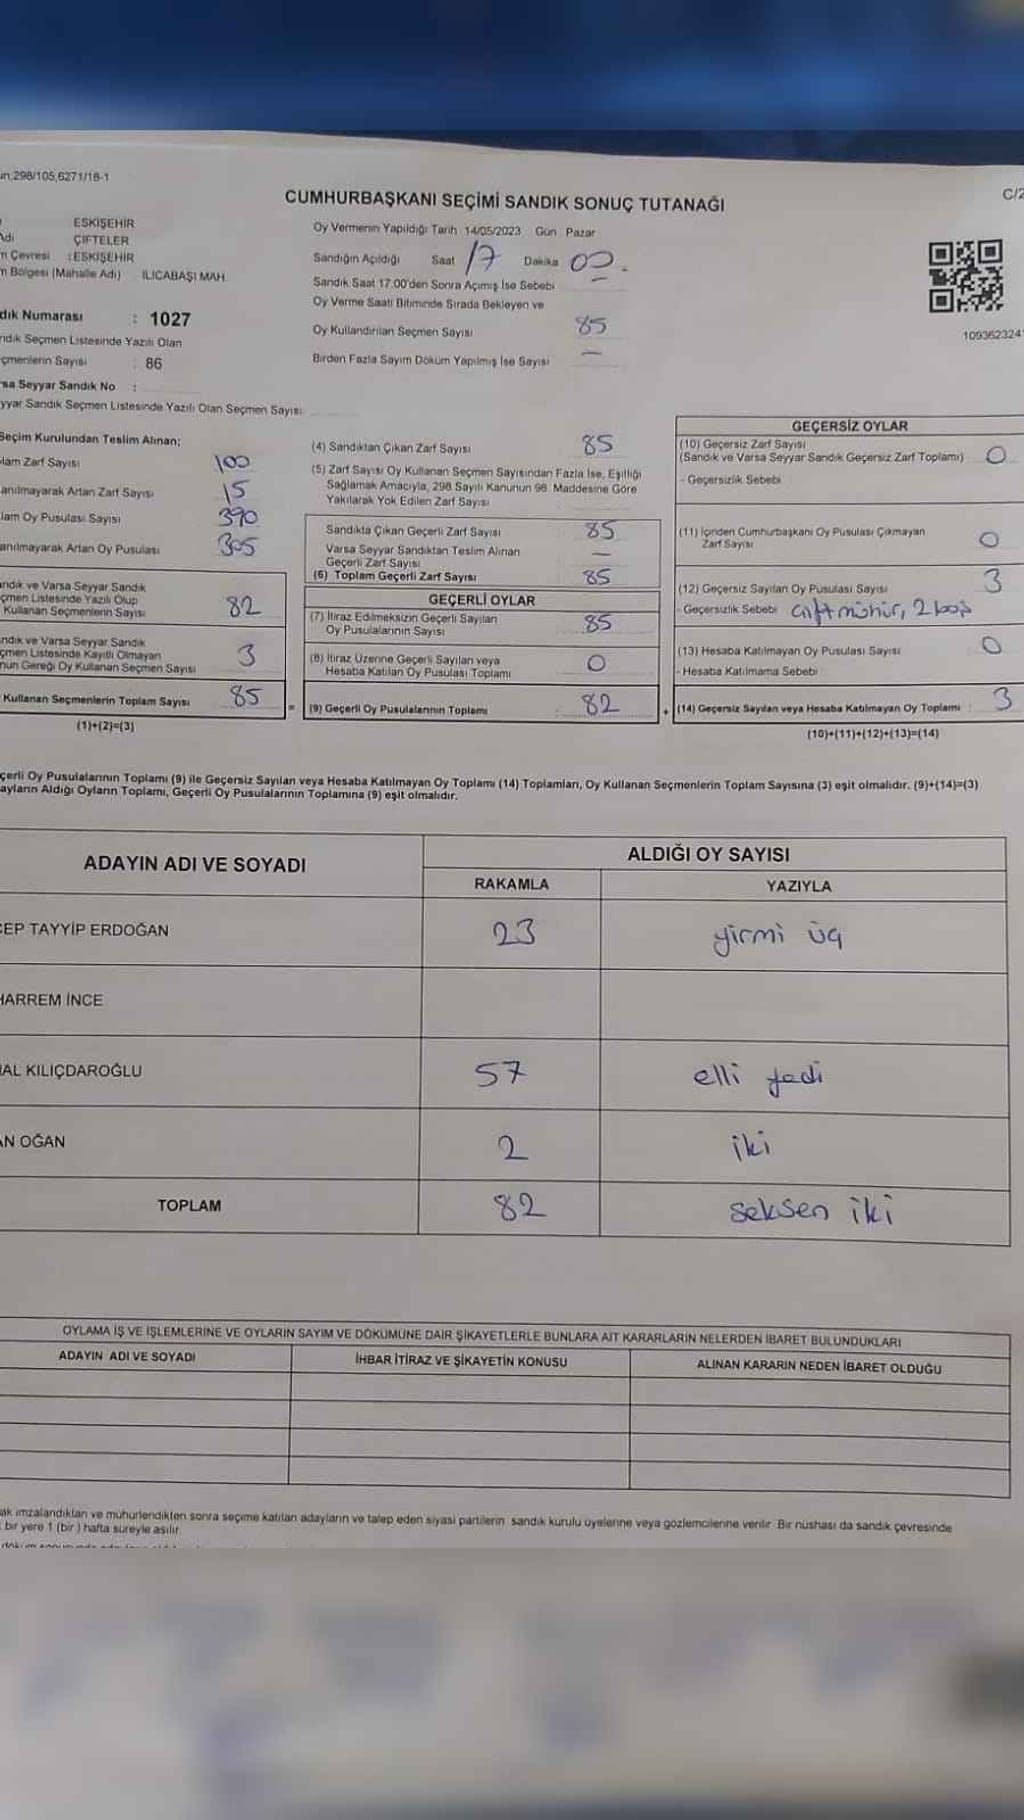 298/105,6271/18-1
CUMHURBAŞKANI SEÇİMİ SANDIK SONUÇ TUTANAĞI
C/2
ESKİŞEHİR
ÇİFTELER
Çevresi : ESKİŞEHİR
Bölgesi (Mahalle Adı) ILICABAŞI MAH.
Oy Vermenin Yapıldığı Tarih 14/05/2023 Gün Pazar
Sandığın Açıldığı Saat 17 Dakika 00
Sandık Saat 17.00'den Sonra Açımış İse Sebebi
Oy Verme Saati Bitiminde Sırada Bekleyen ve
Oy Kullandırılan Seçmen Sayısı 85
Birden Fazla Sayım Döküm Yapılmış İse Sayısı —
109362324
dık Numarası : 1027
ndık Seçmen Listesinde Yazılı Olan
çmenlerin Sayısı : 86
sa Seyyar Sandık No :
yyar Sandık Seçmen Listesinde Yazılı Olan Seçmen Sayısı:
Seçim Kurulundan Teslim Alınan;
lam Zarf Sayısı 100
anılmayarak Artan Zarf Sayısı 15
lam Oy Pusulası Sayısı 390
anılmayarak Artan Oy Pusulası 305
ndık ve Varsa Seyyar Sandık
çmen Listesinde Yazılı Olup
Kullanan Seçmenlerin Sayısı 82
ndık ve Varsa Seyyar Sandık
çmen Listesinde Kayıtlı Olmayan
nun Gereği Oy Kullanan Seçmen Sayısı 3
Kullanan Seçmenlerin Toplam Sayısı 85
(1)+(2)=(3)
(4) Sandıktan Çıkan Zarf Sayısı 85
(5) Zarf Sayısı Oy Kullanan Seçmen Sayısından Fazla İse, Eşitliği
Sağlamak Amacıyla, 298 Sayılı Kanunun 98. Maddesine Göre
Yakılarak Yok Edilen Zarf Sayısı
Sandıkta Çıkan Geçerli Zarf Sayısı 85
Varsa Seyyar Sandıktan Teslim Alınan
Geçerli Zarf Sayısı —
(6) Toplam Geçerli Zarf Sayısı 85
GEÇERLİ OYLAR
(7) İtiraz Edilmeksizin Geçerli Sayılan
Oy Pusulalarının Sayısı 85
(8) İtiraz Üzerine Geçerli Sayılan veya
Hesaba Katılan Oy Pusulası Toplamı 0
= (9) Geçerli Oy Pusulalarının Toplamı 82
GEÇERSİZ OYLAR
(10) Geçersiz Zarf Sayısı
(Sandık ve Varsa Seyyar Sandık Geçersiz Zarf Toplamı) 0
- Geçersizlik Sebebi
(11) İçinden Cumhurbaşkanı Oy Pusulası Çıkmayan
Zarf Sayısı 0
(12) Geçersiz Sayılan Oy Pusulası Sayısı 3
- Geçersizlik Sebebi çift mühür, 2 boş
(13) Hesaba Katılmayan Oy Pusulası Sayısı 0
- Hesaba Katılmama Sebebi
+ (14) Geçersiz Sayılan veya Hesaba Katılmayan Oy Toplamı : 3
(10)+(11)+(12)+(13)=(14)
çerli Oy Pusulalarının Toplamı (9) ile Geçersiz Sayılan veya Hesaba Katılmayan Oy Toplamı (14) Toplamları, Oy Kullanan Seçmenlerin Toplam Sayısına (3) eşit olmalıdır. (9)+(14)=(3)
ayların Aldığı Oyların Toplamı, Geçerli Oy Pusulalarının Toplamına (9) eşit olmalıdır.
ADAYIN ADI VE SOYADI
ALDIĞI OY SAYISI
RAKAMLA YAZIYLA
CEP TAYYİP ERDOĞAN 23 yirmi üç
HARREM İNCE
AL KILIÇDAROĞLU 57 elli yedi
AN OĞAN 2 iki
TOPLAM 82 seksen iki
OYLAMA İŞ VE İŞLEMLERİNE VE OYLARIN SAYIM VE DÖKÜMÜNE DAİR ŞİKAYETLERLE BUNLARA AİT KARARLARIN NELERDEN İBARET BULUNDUKLARI
ADAYIN ADI VE SOYADI İHBAR İTİRAZ VE ŞİKAYETİN KONUSU ALINAN KARARIN NEDEN İBARET OLDUĞU
ak imzalandıktan ve mühürlendikten sonra seçime katılan adayların ve talep eden siyasi partilerin sandık kurulu üyelerine veya gözlemcilerine verilir. Bir nüshası da sandık çevresinde
bir yere 1 (bir) hafta süreyle asılır.